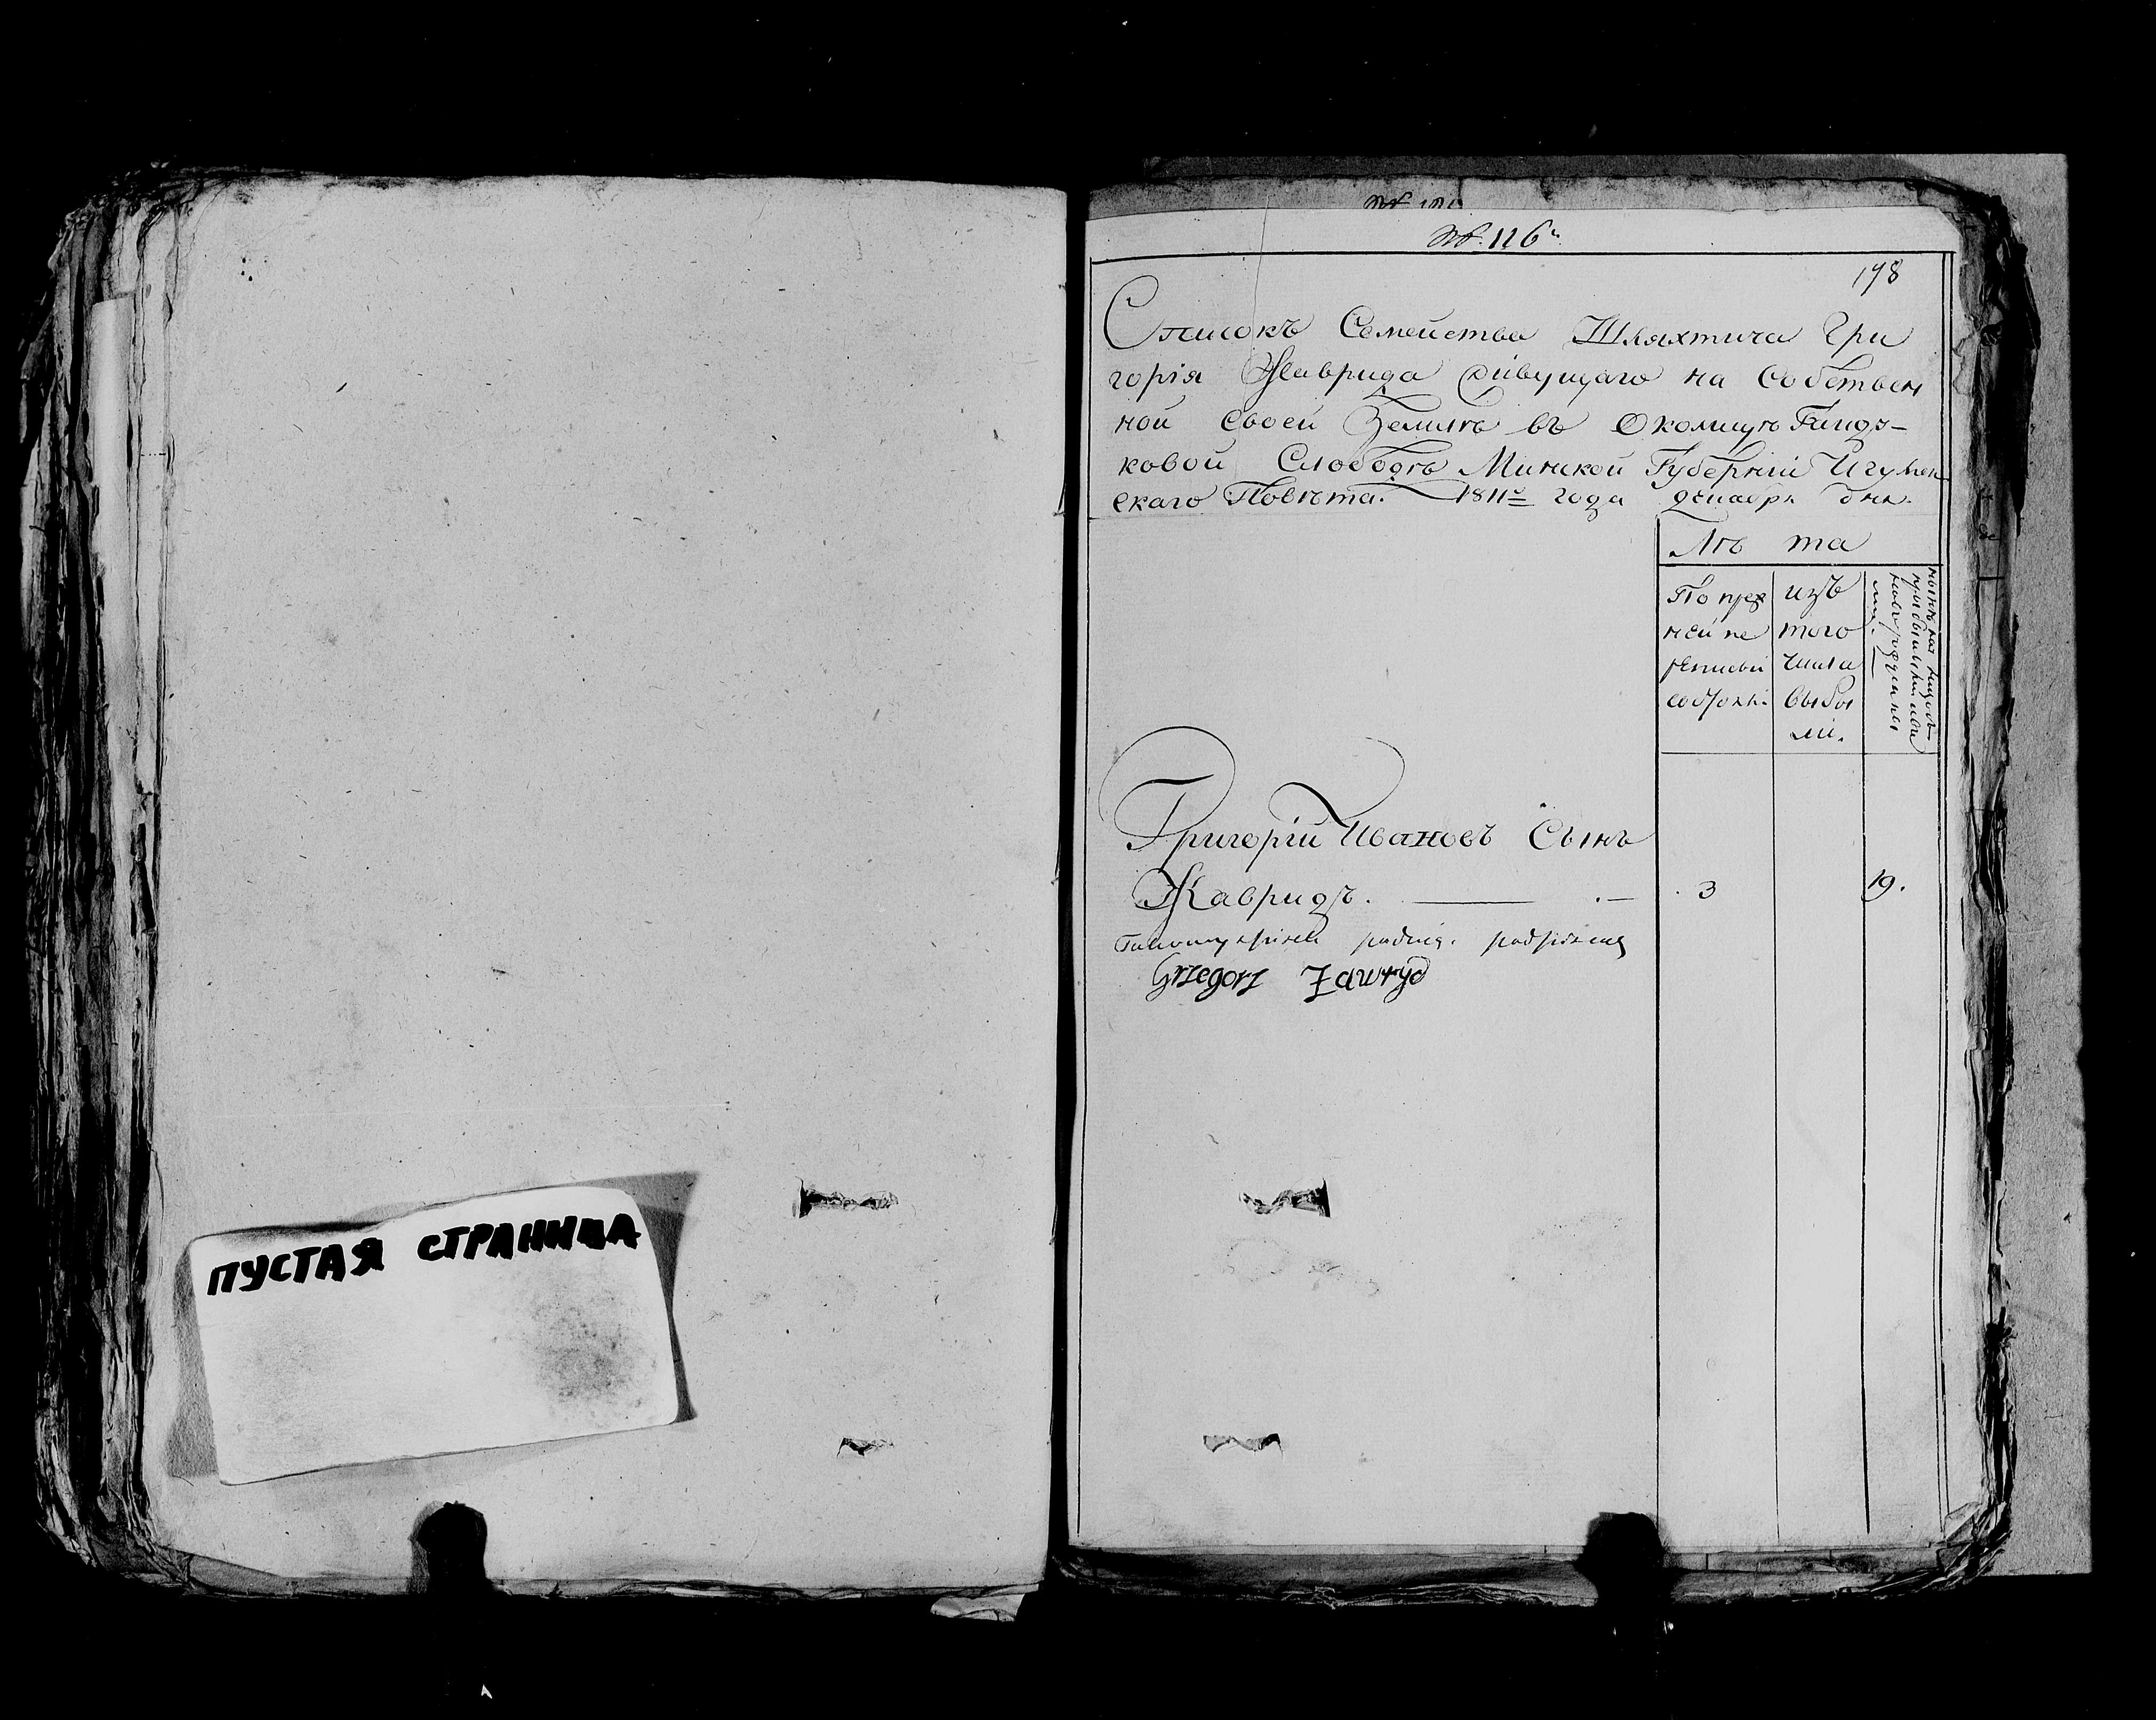 ПУСТАЯ СТРАНИЦА
№. 126
178
Списокъ Семейства Шляхтича Гри
горія Жаврида живущаго на Собствен
ной своей Землѣ въ Околицѣ
ковой Слободѣ Минской Губерніи Игумен
скаго Повѣта. 1811го года декабря дня.
Лѣ та
По преж
ней ре
состояли.
изъ
того
числа
выбы
ли.
Григорій Ивановъ Сынъ
Жавридъ. 3 19.
Grzegorz Zawryd